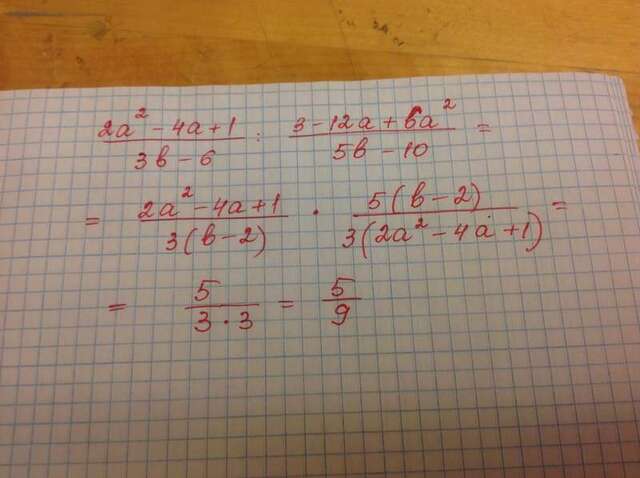 (2a² - 4a + 1)/(3b - 6) : (3 - 12a + 6a²)/(5b - 10) =
= (2a² - 4a + 1)/(3(b - 2)) · (5(b - 2))/(3(2a² - 4a + 1)) =
= 5/(3 · 3) = 5/9